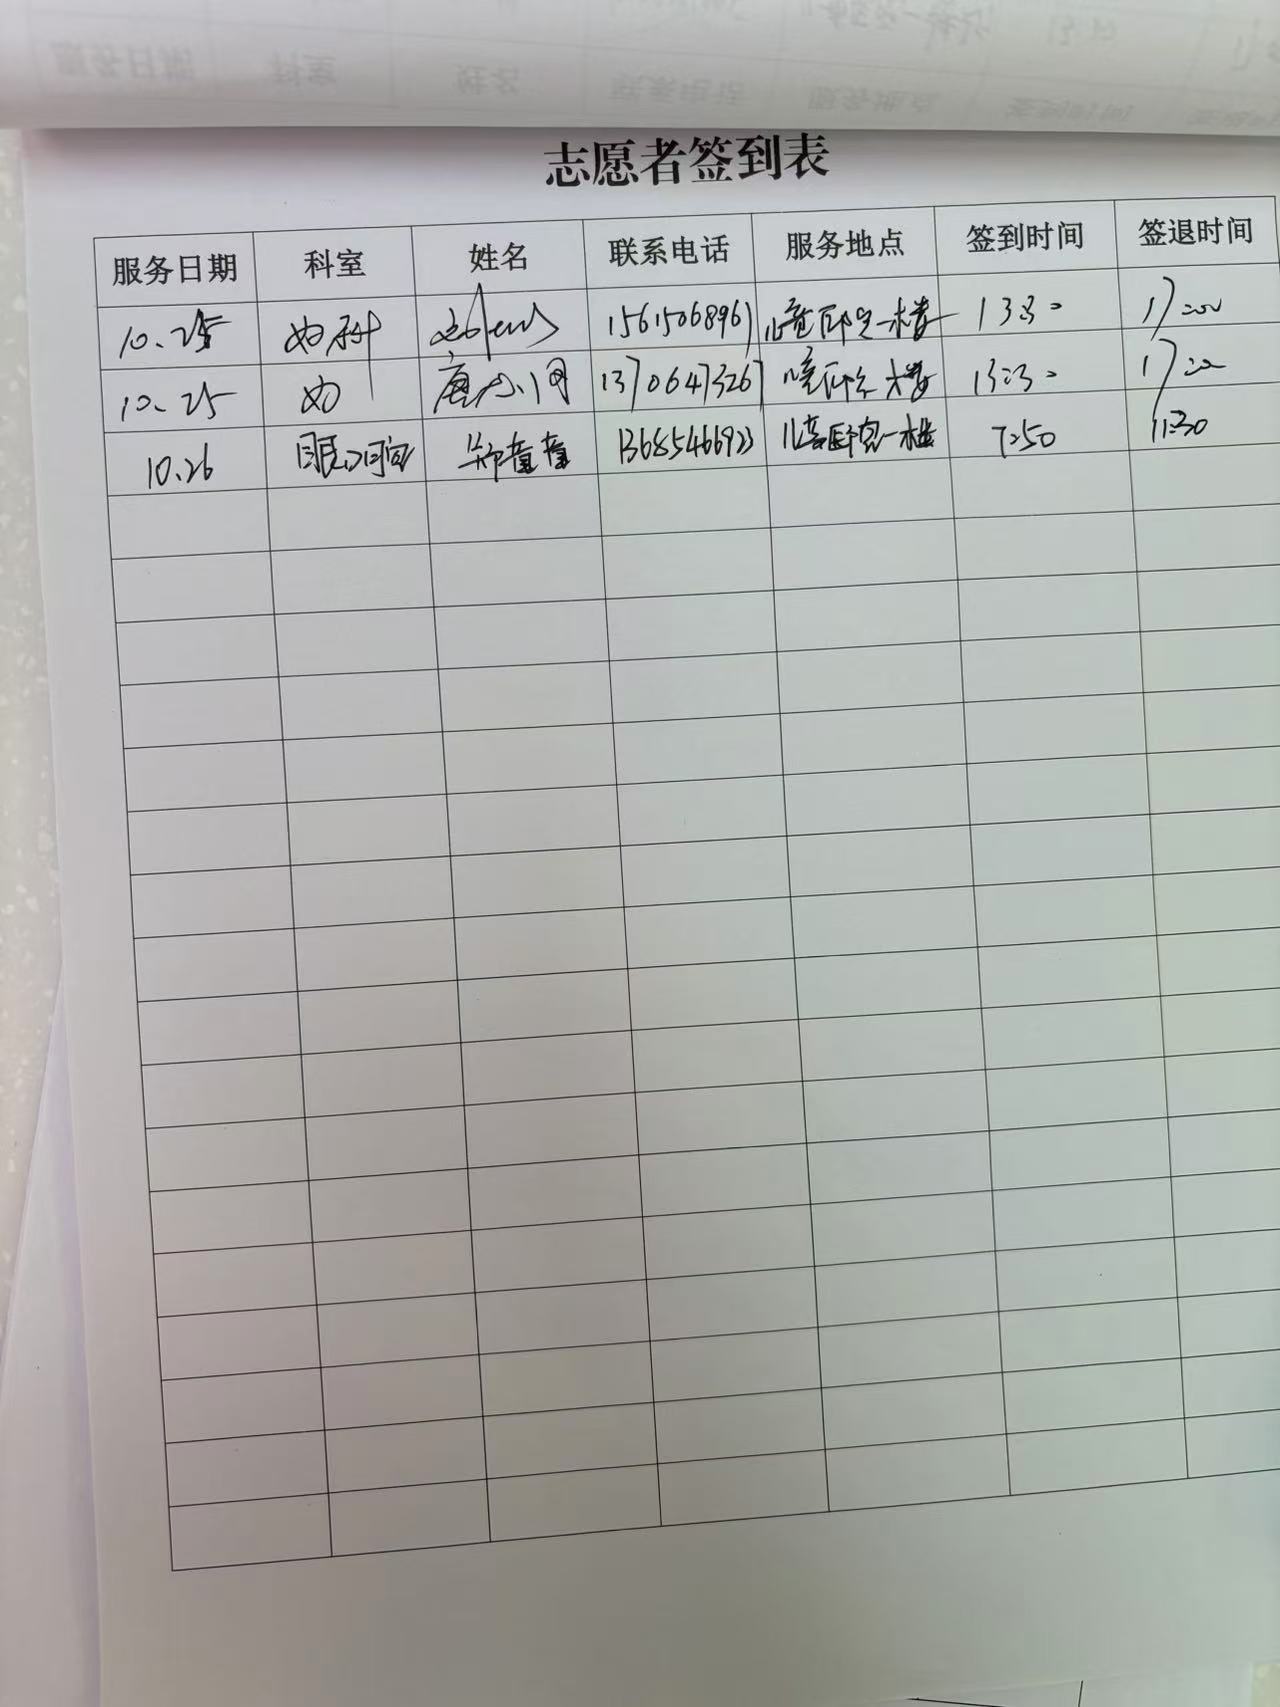 志愿者签到表
服务日期 科室 姓名 联系电话 服务地点 签到时间 签退时间
10.25 妇科 15615068967 一楼 13:30 17:00
10.25 妇 唐 13706473267 楼 13:30 17:00
10.26 眼 郑童童 13685466923 一楼 7:50 11:30